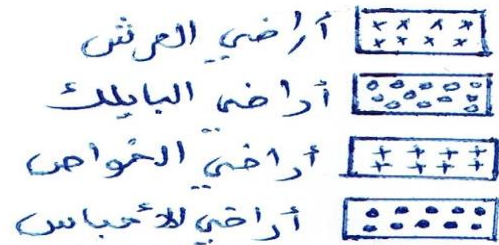 أراضي العرش
أراضي البايلك
أراضي الخواص
أراضي الأحباس